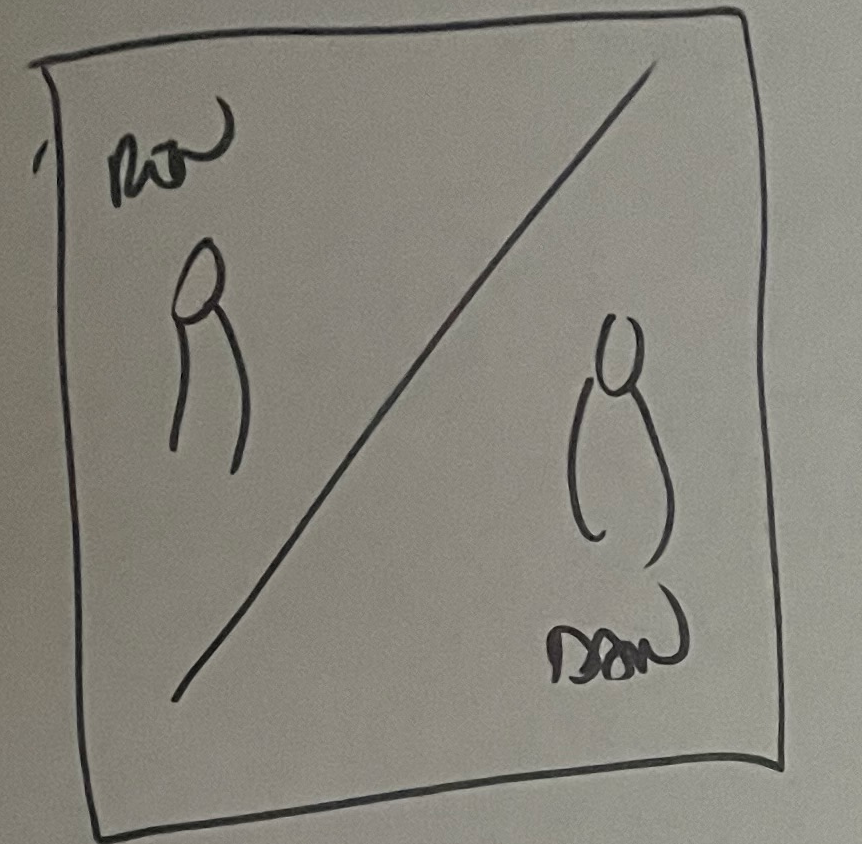 RON
DAN